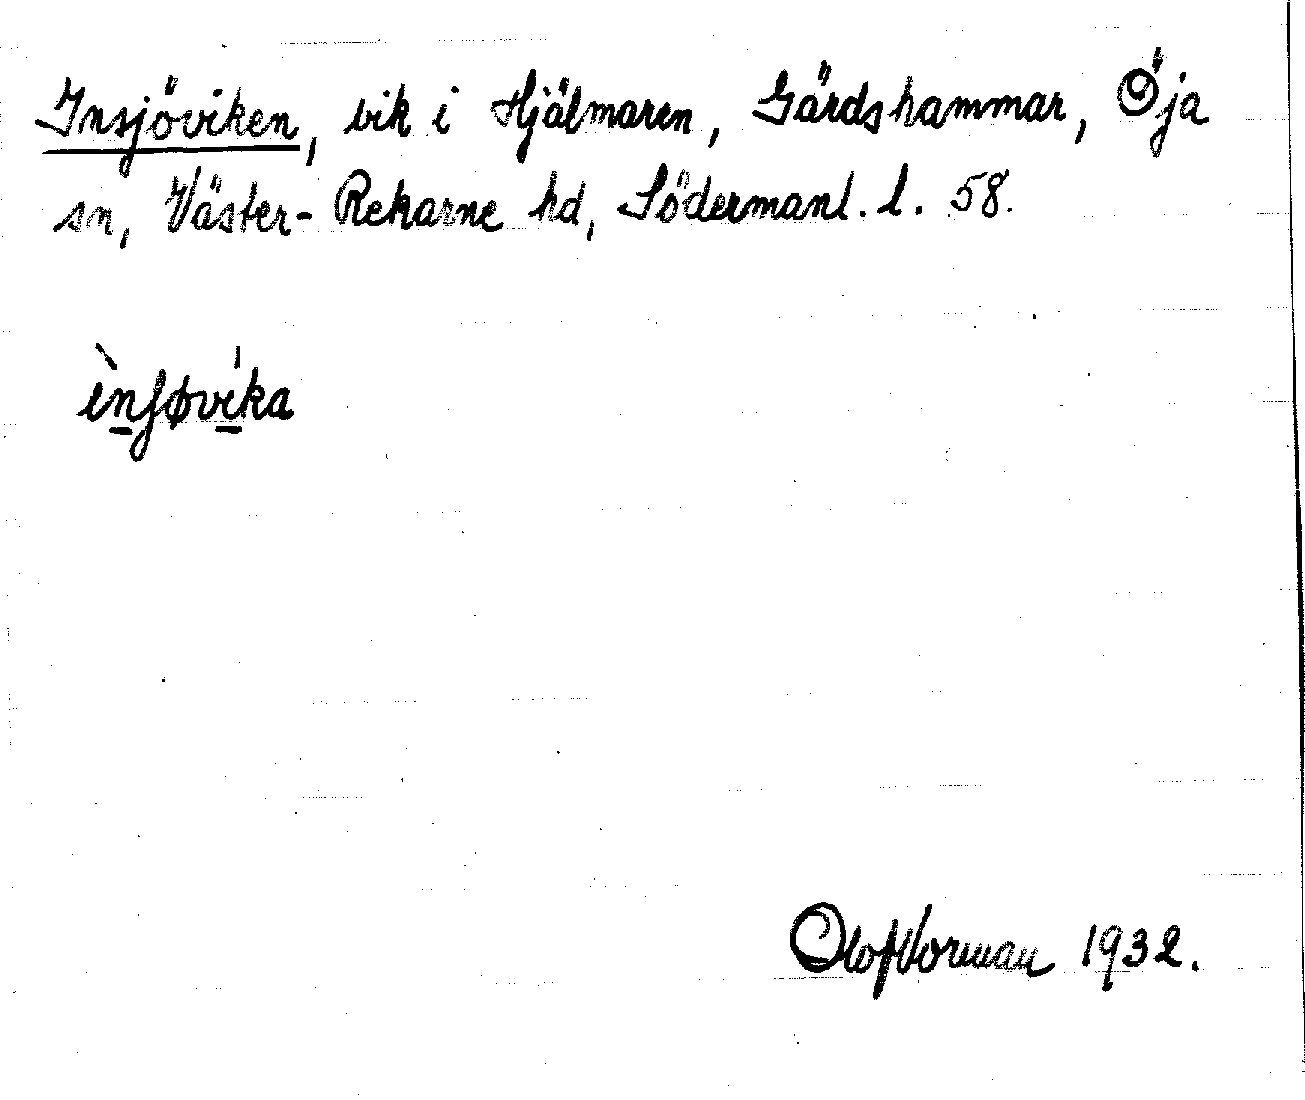 Insjöviken, vik i Hjälmaren, Gärdshammar, Öja
sn, Väster-Rekarne hd, Södermanl. l. 58.
ìnʃøvi̍ka
Olof Norman 1932.